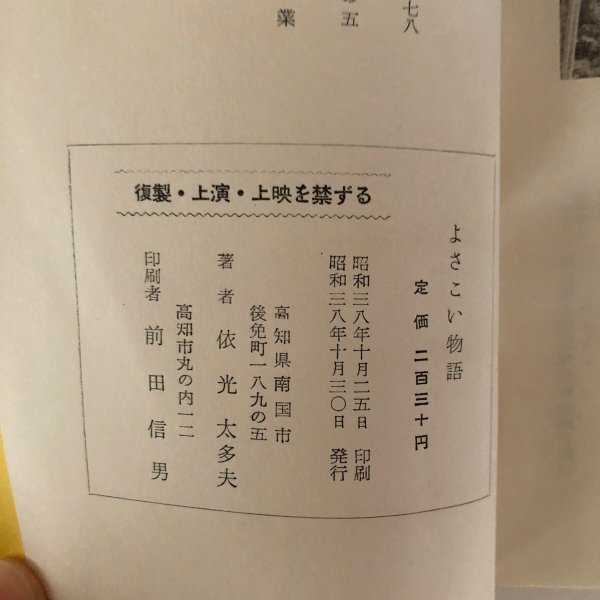 七八
の五
業
よさこい物語
定価 二百三十円
昭和三八年十月二五日 印刷
昭和三八年十月三〇日 発行
高知県南国市
後免町一八九の五
著者 依光太多夫
高知市丸の内一二
印刷者 前田信男
復製・上演・上映を禁ずる